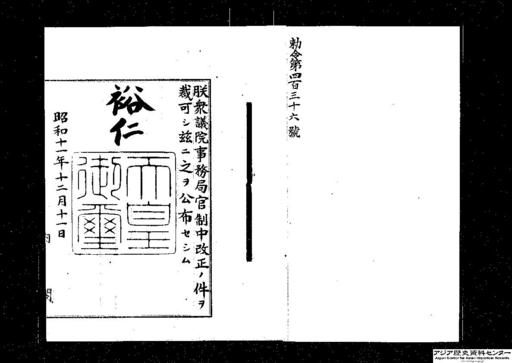 勅令第四百三十六號
朕衆議院事務局官制中改正ノ件ヲ
裁可シ茲ニ之ヲ公布セシム
裕仁
天皇
御璽
昭和十一年十二月十一日
内閣
アジア歴史資料センター
Japan Center for Asian Historical Records